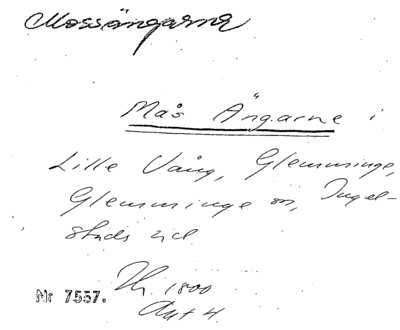 Mossängarne
Mås Ängarne i
Lille Vång, Glemminge,
Glemminge sn, Ingel-
stads hd
1800
Akt 4
Nr 7557.